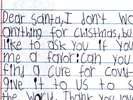 Dear Santa, I don't wa
anything for Cistmas, bu
like to ask you if you
me a favor: can you
find a cure for covi
give it to us to
the world. Thank you